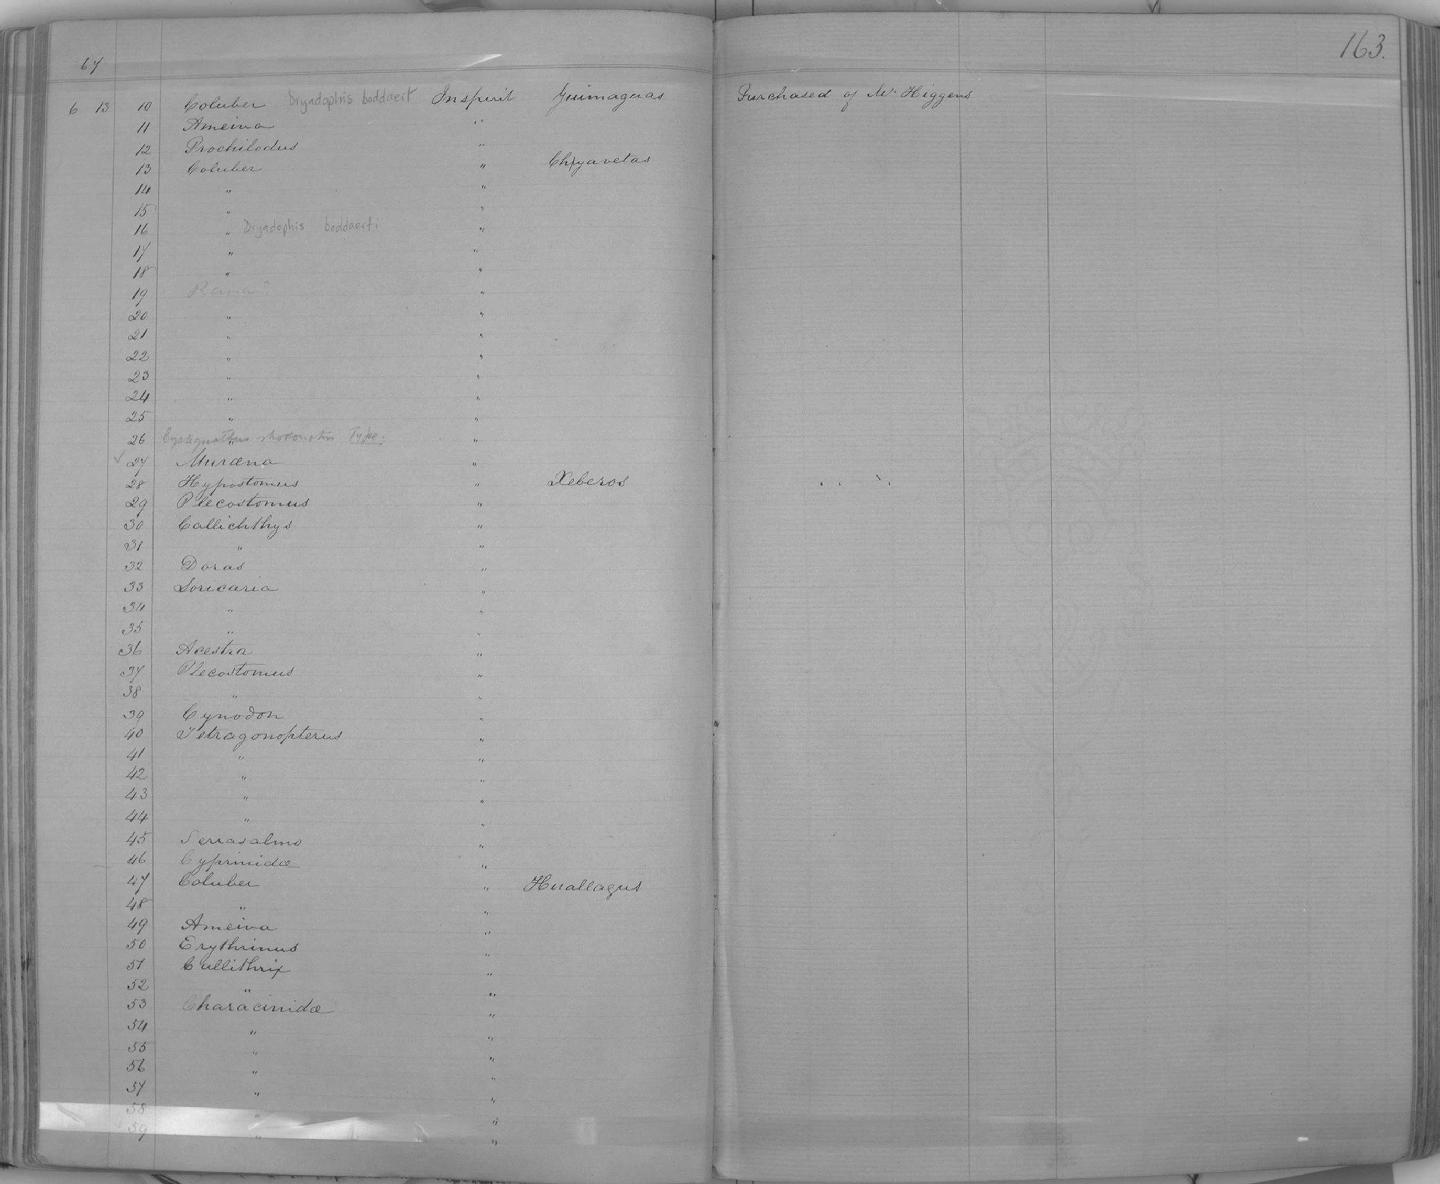 67
163.
6 13 10 Coluber Dryadophis boddaert In spirit Yuimaguas Purchased of Mr Higgens
11 Ameiva "
12 Prochilodus "
13 Coluber " Chyavetas
14 " "
15 " "
16 " Dryadophis boddaerti "
17 " "
18 " "
19 Rana? "
20 " "
21 " "
22 " "
23 " "
24 " "
25 " "
26 Cystignathus rhodonotus Type. "
27 Muræna "
28 Hypostomus " Xeberos " "
29 Plecostomus "
30 Callichthys "
31 " "
32 Doras "
33 Loricaria "
34 " "
35 " "
36 Acestra "
37 Plecostomus "
38 " "
39 Cynodon "
40 Tetragonopterus "
41 " "
42 " "
43 " "
44 " "
45 Serrasalmo "
46 Cyprinidæ "
47 Coluber " Huallagus
48 " "
49 Ameiva "
50 Erythrinus "
51 Cullithrix "
52 " "
53 Characinidæ "
54 " "
55 " "
56 " "
57 " "
58 " "
59 " "